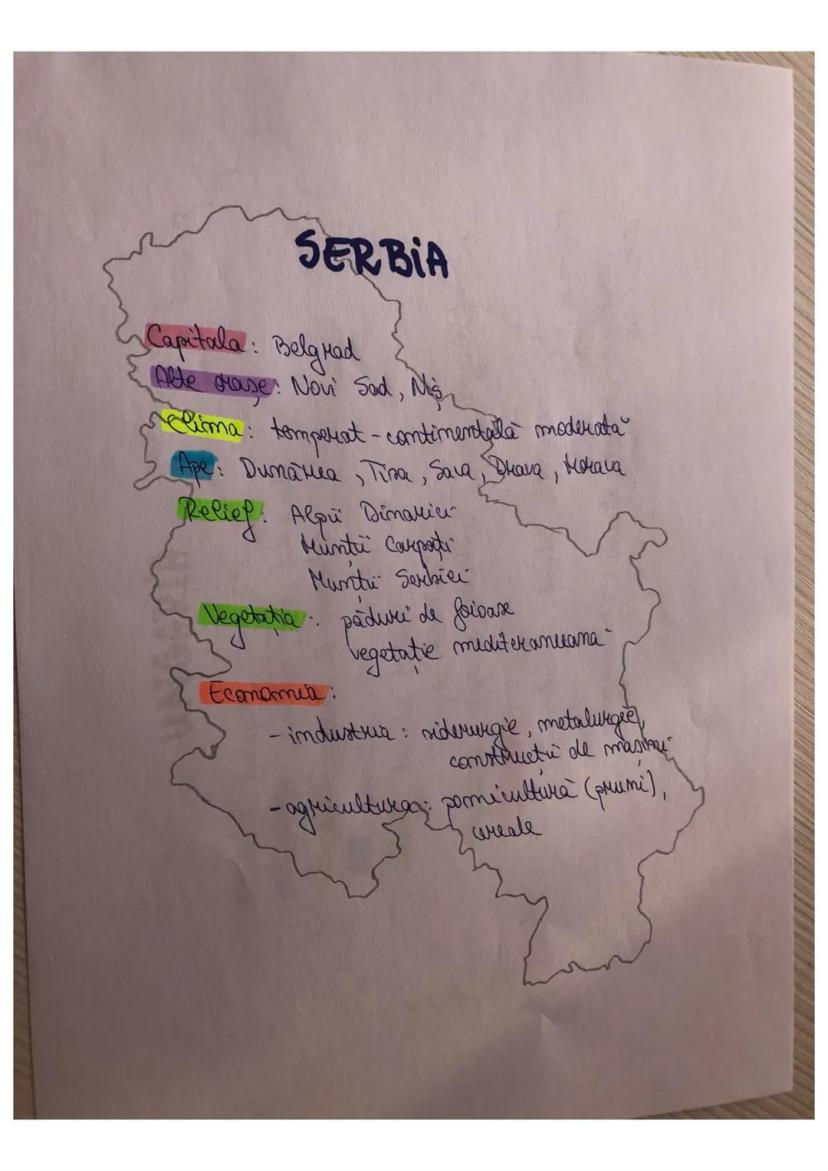 SERBiA
Capitala: Belgrad
Alte orașe: Novi Sad, Niș
Clima: temperat-continentală moderată
Ape: Dunărea, Tisa, Sava, Drava, Morava
Relief: Alpii Dinarici
Munții Carpați
Munții Serbiei
Vegetația: păduri de foioase
vegetație mediteraneeană
Economia:
- industria: siderurgie, metalurgie,
construcții de mașini
- agricultura: pomicultură (pruni),
cereale